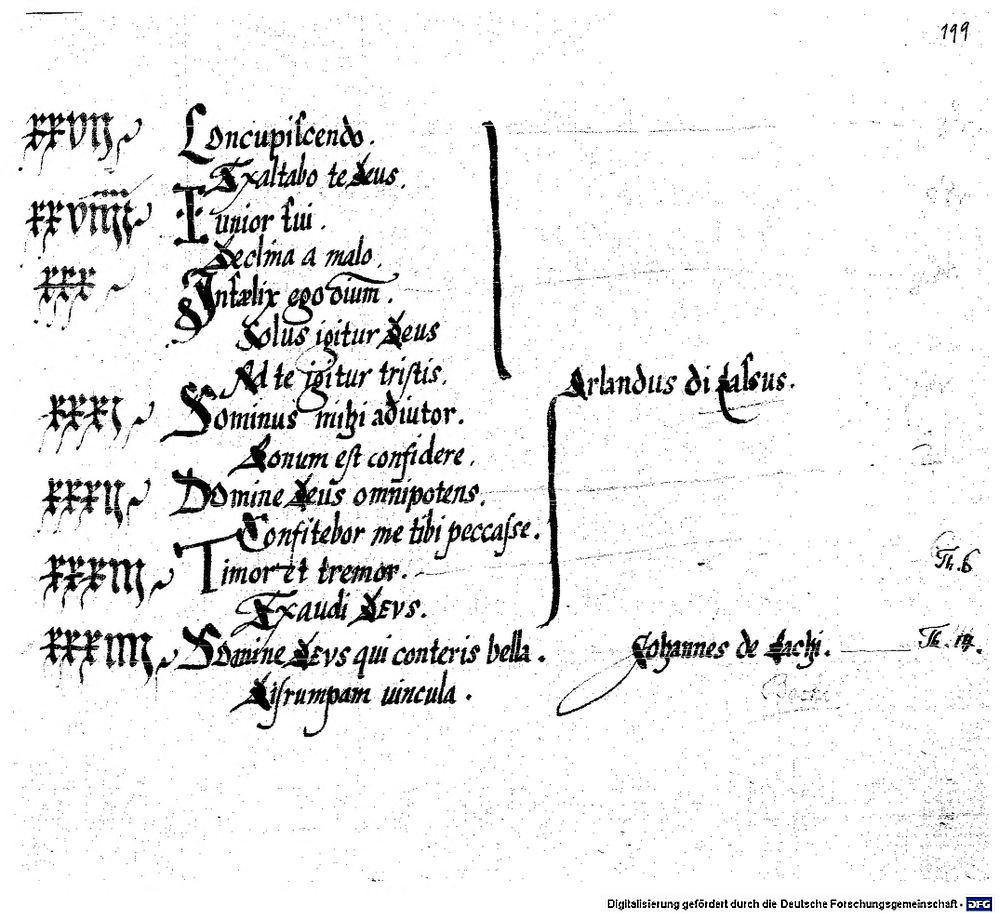 199
xxvii Concupiscendo.
Exaltabo te Deus.
xxviiii Iunior fui.
Declina a malo.
xxx Infælix ego om̄iu.
Solus igitur Deus
Ad te igitur tristis.
xxxi Dominus mihi adiutor.
Orlandus di Lassus.
Bonum est confidere.
xxxii Domine Deus omnipotens.
Confitebor me tibi peccasse.
xxxiii Timor et tremor.
Th. 6
Exaudi DEVS.
xxxiiii Domine DEVS qui conteris bella.
Johannes de Bachi.
Th. 14.
Disrumpam uincula.
Digitalisierung gefördert durch die Deutsche Forschungsgemeinschaft - DFG